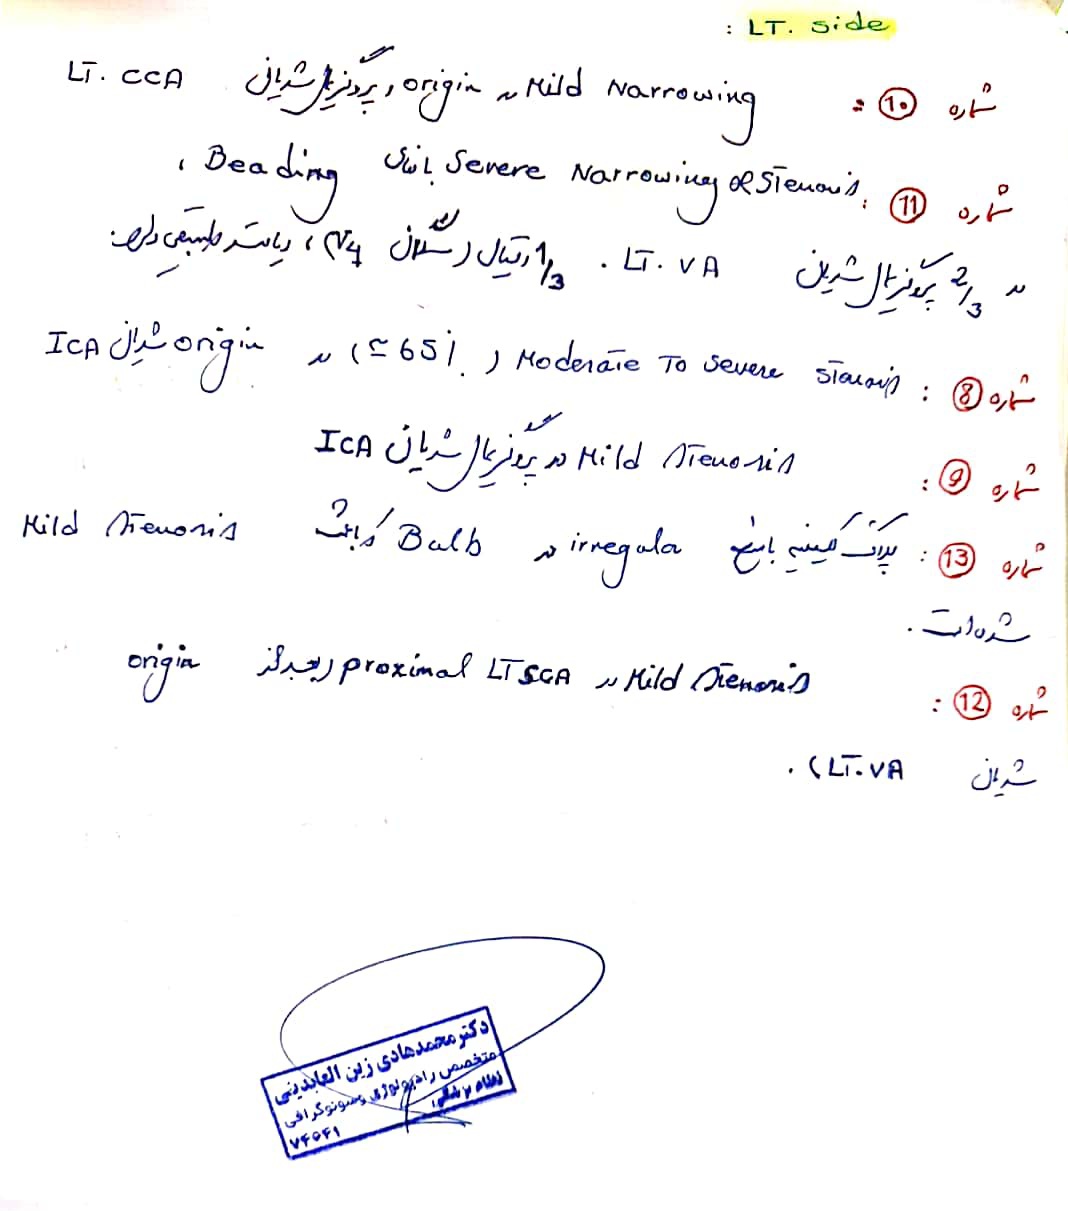 LT. side :
شماره 10 : Mild Narrowing در origin و پروگزیمال شریانی LT. CCA
شماره 11 : Severe Narrowing & Stenosis با نمای Beading ،
در 2/3 پروگزیمال شریان LT. VA . 1/3 دیستال (سگمان V4) ، دیامتر طبیعی دارد.
شماره 8 : Moderate To Severe Stenosis ( ≃ 65٪ ) در origin شریان ICA
شماره 9 : Mild Stenosis در پروگزیمال شریان ICA
شماره 13 : پلاک کلسیفیه با سطح irregular در Bulb کرباعث Mild Stenosis
شده است .
شماره 12 : Mild Stenosis در proximal LT SCA (بعد از origin
شریان LT.VA) .
دکتر محمدهادی زین العابدینی
متخصص رادیولوژی وسونوگرافی
نظام پزشکی:
۷۴۵۴۱